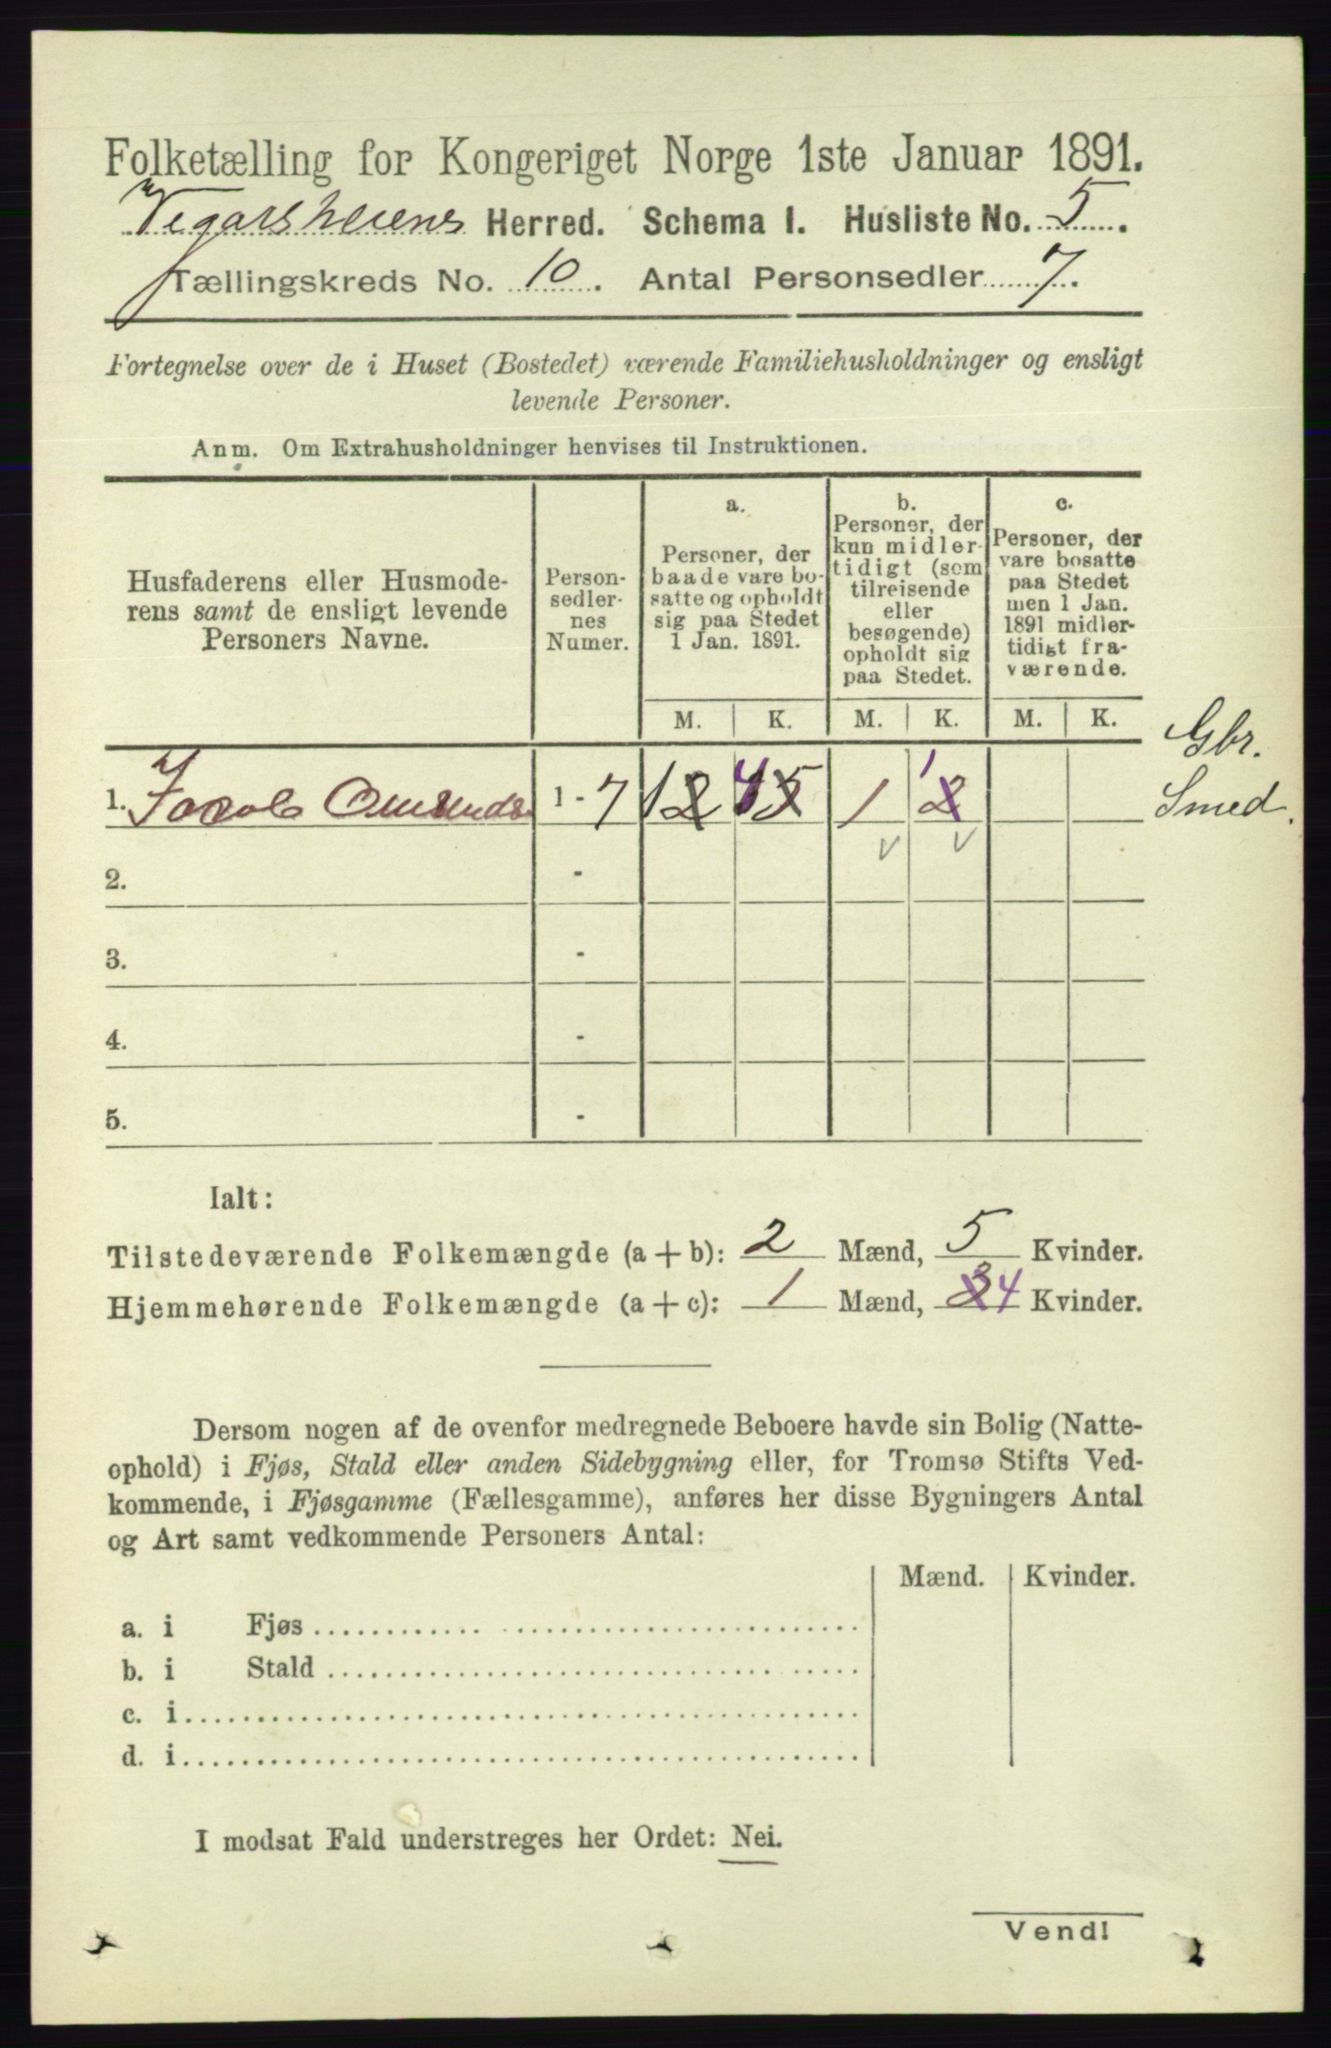 Folketælling for Kongeriget Norge 1ste Januar 1891.
Vegarsheiens Herred. Schema I. Husliste No. 5.
Tællingskreds No. 10. Antal Personsedler 7.
Fortegnelse over de i Huset (Bostedet) værende Familiehusholdninger og ensligt
levende Personer.
Anm. Om Extrahusholdninger henvises til Instruktionen.
Husfaderens eller Husmode-
rens samt de ensligt levende
Personers Navne.
Person-
sedler-
nes
Numer.
a.
Personer, der
baade vare bo-
satte og opholdt
sig paa Stedet
1 Jan. 1891.
b.
Personer, der
kun midler-
tidigt (som
tilreisende
eller
besøgende)
opholdt sig
paa Stedet.
c.
Personer, der
vare bosatte
paa Stedet
men 1 Jan.
1891 midler-
tidigt fra-
værende.
M. K. M. K. M. K.
Gbr.
Smed.
1. Jacob 1 - 7 1 2 4 5 1 1 2
2. -
3. -
4. -
5. -
Ialt:
Tilstedeværende Folkemængde (a + b): 2 Mænd, 5 Kvinder.
Hjemmehørende Folkemængde (a + c): 1 Mænd, 3 4 Kvinder.
Dersom nogen af de ovenfor medregnede Beboere havde sin Bolig (Natte-
ophold) i Fjøs, Stald eller anden Sidebygning eller, for Tromsø Stifts Ved-
kommende, i Fjøsgamme (Fællesgamme), anføres her disse Bygningers Antal
og Art samt vedkommende Personers Antal:
Mænd. Kvinder.
a. i Fjøs
b. i Stald
c. i
d. i
I modsat Fald understreges her Ordet: Nei.
Vend!